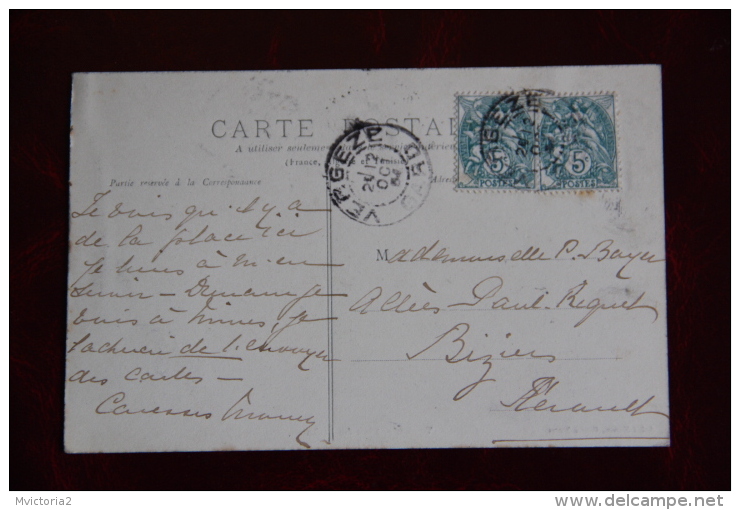 CARTE POSTALE
A utiliser seulement
(France,
Partie réservée à la Correspondance
VERGEZE GARD
2e/12
OC
VERGEZE
5c 5c
POSTES POSTES
Je vois qu'il y a
de la place ici
je tiens à m'en
servir - Demain je
vais à Nimes, je
tacherai de t'envoyer
des cartes -
Caresses
Mademoiselle P. Bayer
Allées Paul-Riquet
Béziers
Hérault
Mvictoria2
delcampe.net